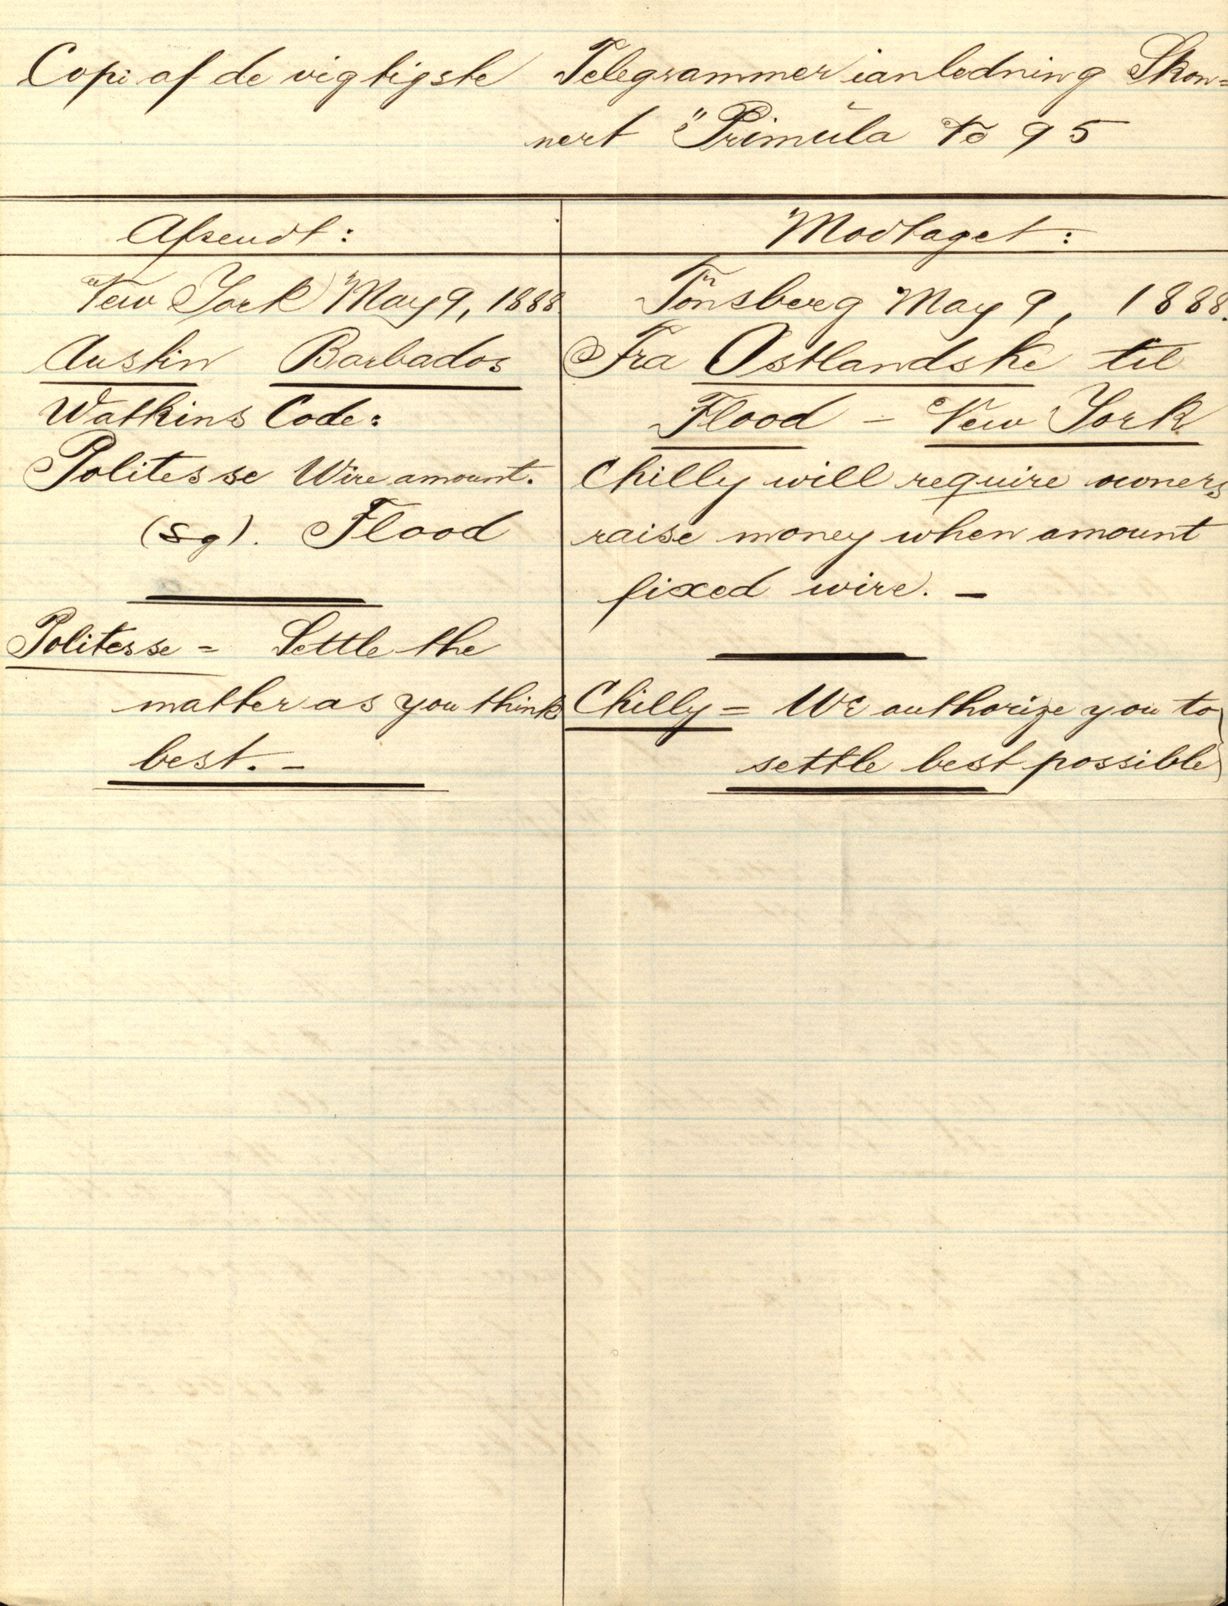 Copi af de vigtigste Telegrammer ianledning Skon=
nert "Primula To 95
Afsendt:
New York May 9, 1888
Austin Barbados
Watkins Code:
Politesse Wire amount.
(Sg). Flood
Politesse = Settle the
matter as you think
best. -
Modtaget:
Tönsberg May 9, 1888.
Fra Ostlandske til
Flood - New York
Chilly will require owners
raise money when amount
fixed wire. -
Chilly = We authorize you to
settle best possible